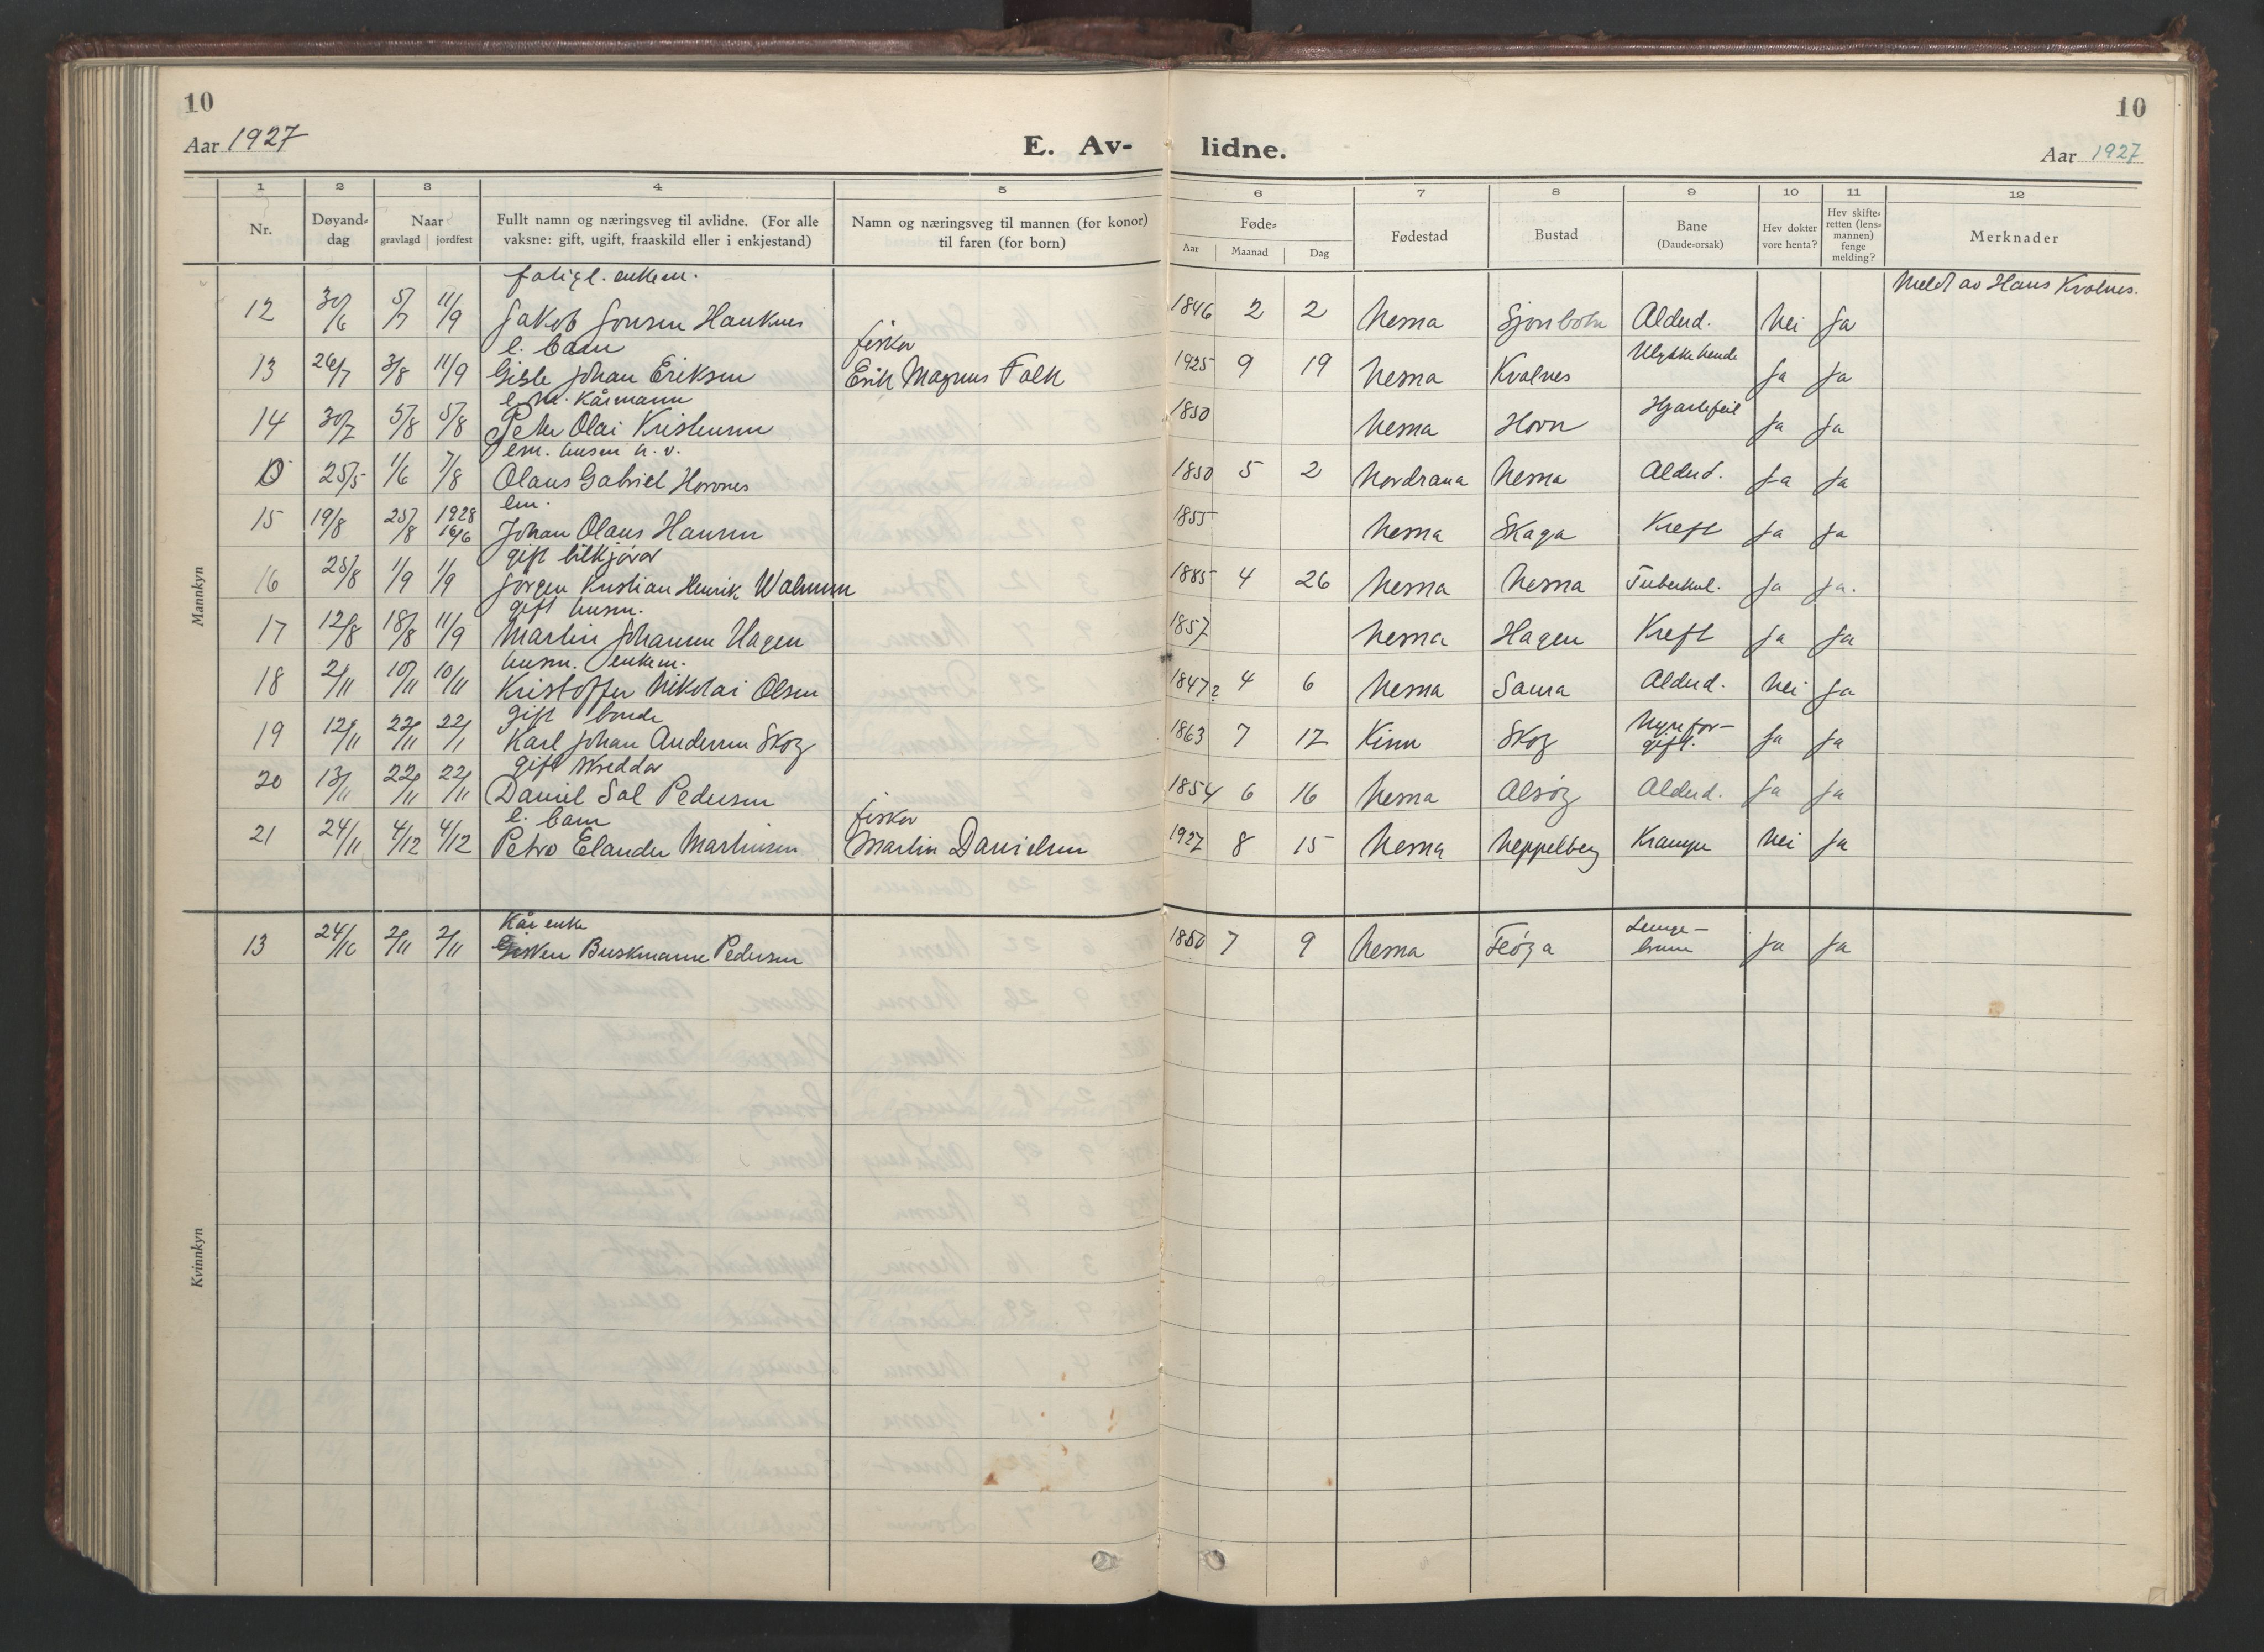 10
Aar 1927
E. Av-
lidne.
10
Aar 1927
1 2 3 4 5 6 7 8 9 10 11 12
Nr.
Døyand-
dag
Naar
gravlagd jordfest
Fullt namn og næringsveg til avlidne. (For alle
vaksne: gift, ugift, fraaskild eller i enkjestand)
Namn og næringsveg til mannen (for konor)
til faren (for born)
Føde-
Aar Maanad Dag
Fødestad
Bustad
Bane
(Daude-orsak)
Hev dokter
vore henta?
Hev skifte-
retten (lens-
mannen)
fenge
melding?
Merknader
Mannkyn
fatigl. enkem.
12 30/6 5/7 11/9 Jakob Jonsen Hauknes 1846 2 2 Nesna Sjonbotn Aldud. Nei Ja Meldt av Hans Kvalnes.
e. barn fisker
13 26/7 3/8 11/9 Gisle Johan Eriksen Erik Magnus Falk 1925 9 19 Nesna Kvalnes Ulykkehende Ja Ja
e.m. Kårmann
14 30/7 5/8 5/8 Peter Olai Kristensen 1850 Nesna Horn Hjartefeil Ja Ja
em. husm
25/5 1/6 7/8 Olaus Gabriel Hovnes 1850 5 2 Nordrana Nesna Aldud. Ja Ja
em.
15 19/8 25/8 1928 16/6 Johan Olaus Hansen 1855 Nesna Skaga Kreft Ja Ja
gift bilkjører
16 25/8 1/9 1/9 Jørgen Kristian Henrik Walnum 1885 4 26 Nesna Nesna Tuberkul. Ja Ja.
gift husm.
17 12/8 18/8 11/9 Martin Johannes Hagen 1857 Nesna Hagen Kreft Ja Ja
husm. enkem.
18 2/11 10/11 10/11 Kristoffer Nikolai Olsen 1847? 4 6 Nesna Saura Aldud. Nei Ja
gift bonde
19 12/11 22/11 22/1 Karl Johan Andersen Skog 1863 7 17 Kinn Skog Nyrefor-
gift. Ja Ja
gift skredder
20 13/11 22/11 22/11 Daniel Sal Pedersen 1854 6 16 Nesna Alsøy Aldud. Ja Ja
e. barn fisker
21 24/11 4/12 4/12 Petro Elander Martinsen Martin Danielsen 1927 8 15 Nesna Neppelberg Krampe Nei Ja
Kvinnkyn
Kår enke
13 24/10 2/11 2/11 Buskmanne Pedersen 1850 7 9 Nesna Feøya Lunge-
brann Ja Ja